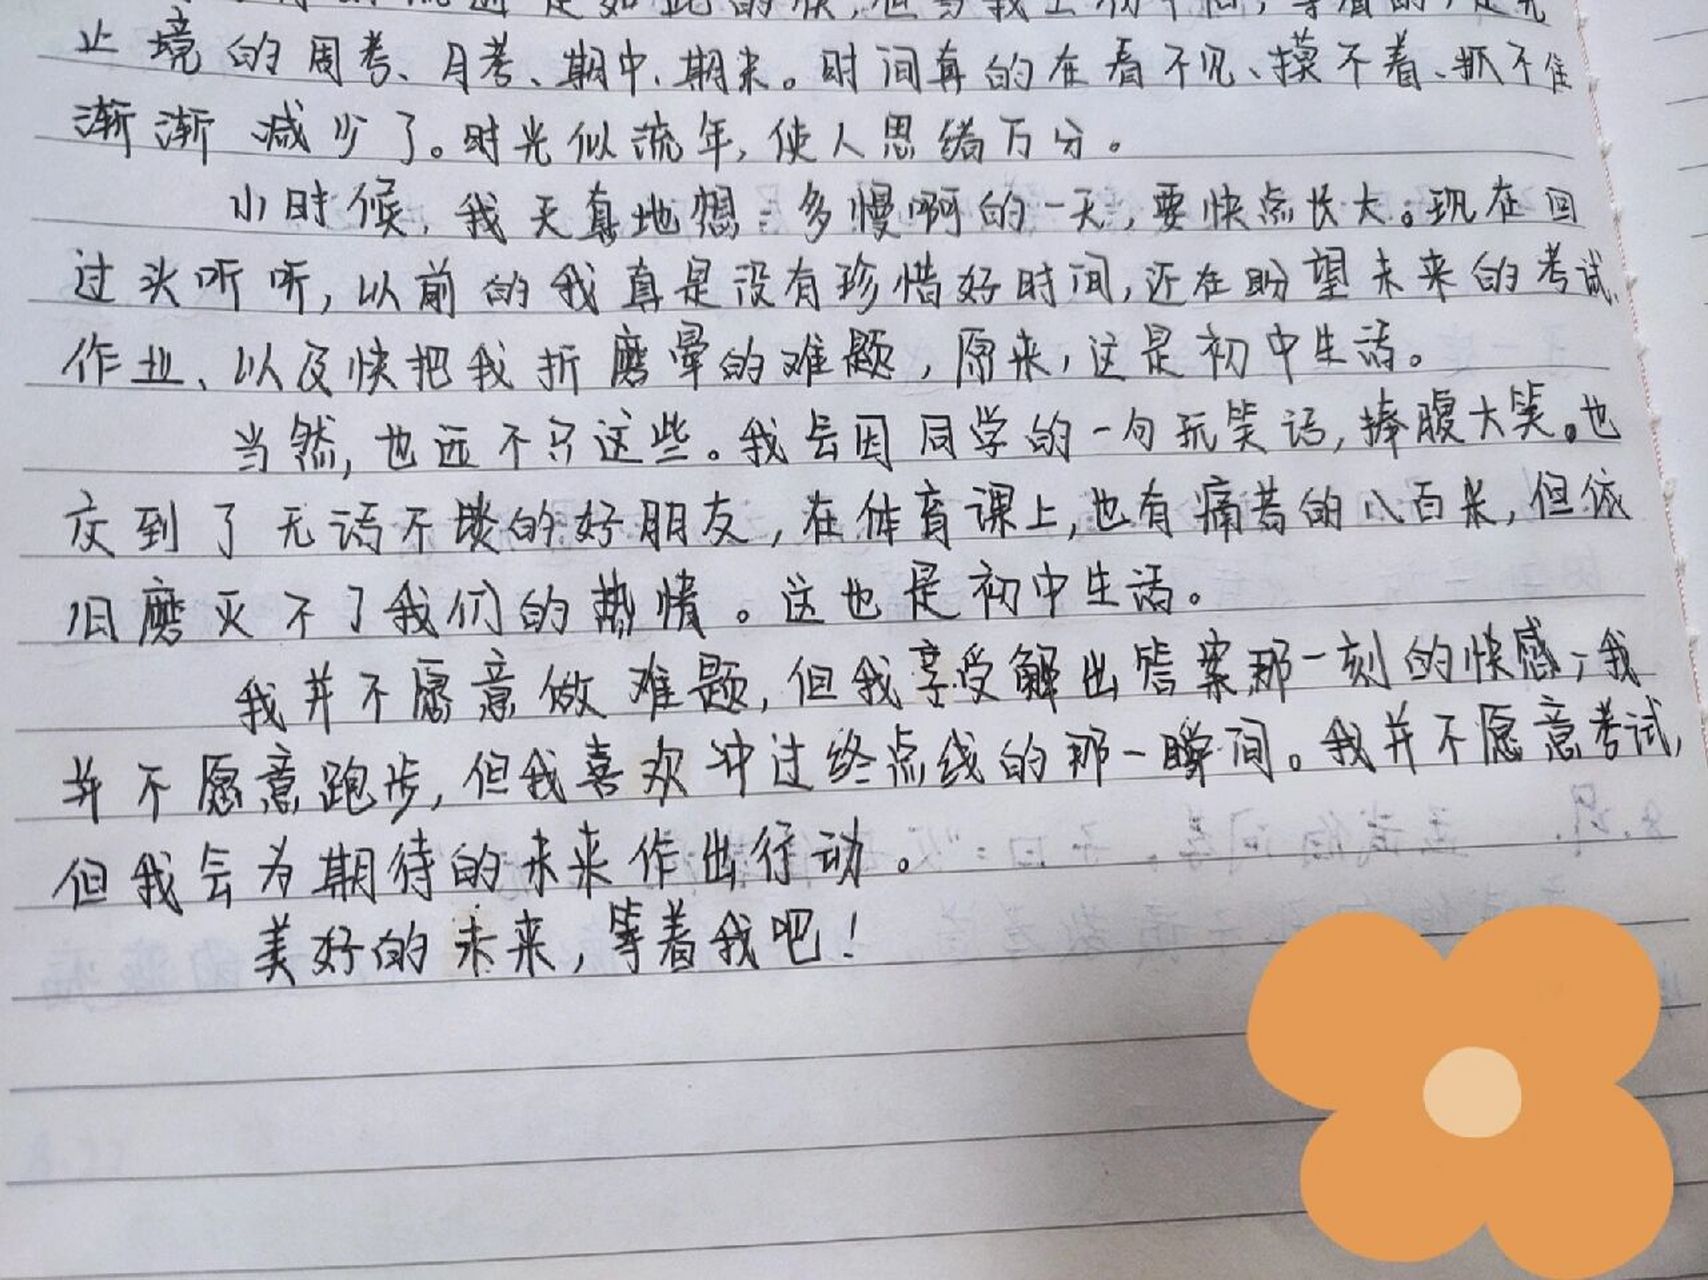 是如此的快,但当我上初中后,等着的,是无
止境的周考、月考、期中、期末。时间真的在看不见、摸不着、抓不住
渐渐减少了。时光似流年,使人思绪万分。
小时候,我天真地想:多慢啊的一天,要快点长大。现在回
过头听听,以前的我真是没有珍惜好时间,还在盼望未来的考试、
作业、以及快把我折磨晕的难题,原来,这是初中生活。
当然,也远不只这些。我会因同学的一句玩笑话,捧腹大笑。也
交到了无话不谈的好朋友,在体育课上,也有痛苦的八百米,但依
旧磨灭不了我们的热情。这也是初中生活。
我并不愿意做难题,但我享受解出答案那一刻的快感,我
并不愿意跑步,但我喜欢冲过终点线的那一瞬间。我并不愿意考试,
但我会为期待的未来作出行动。
美好的未来,等着我吧!